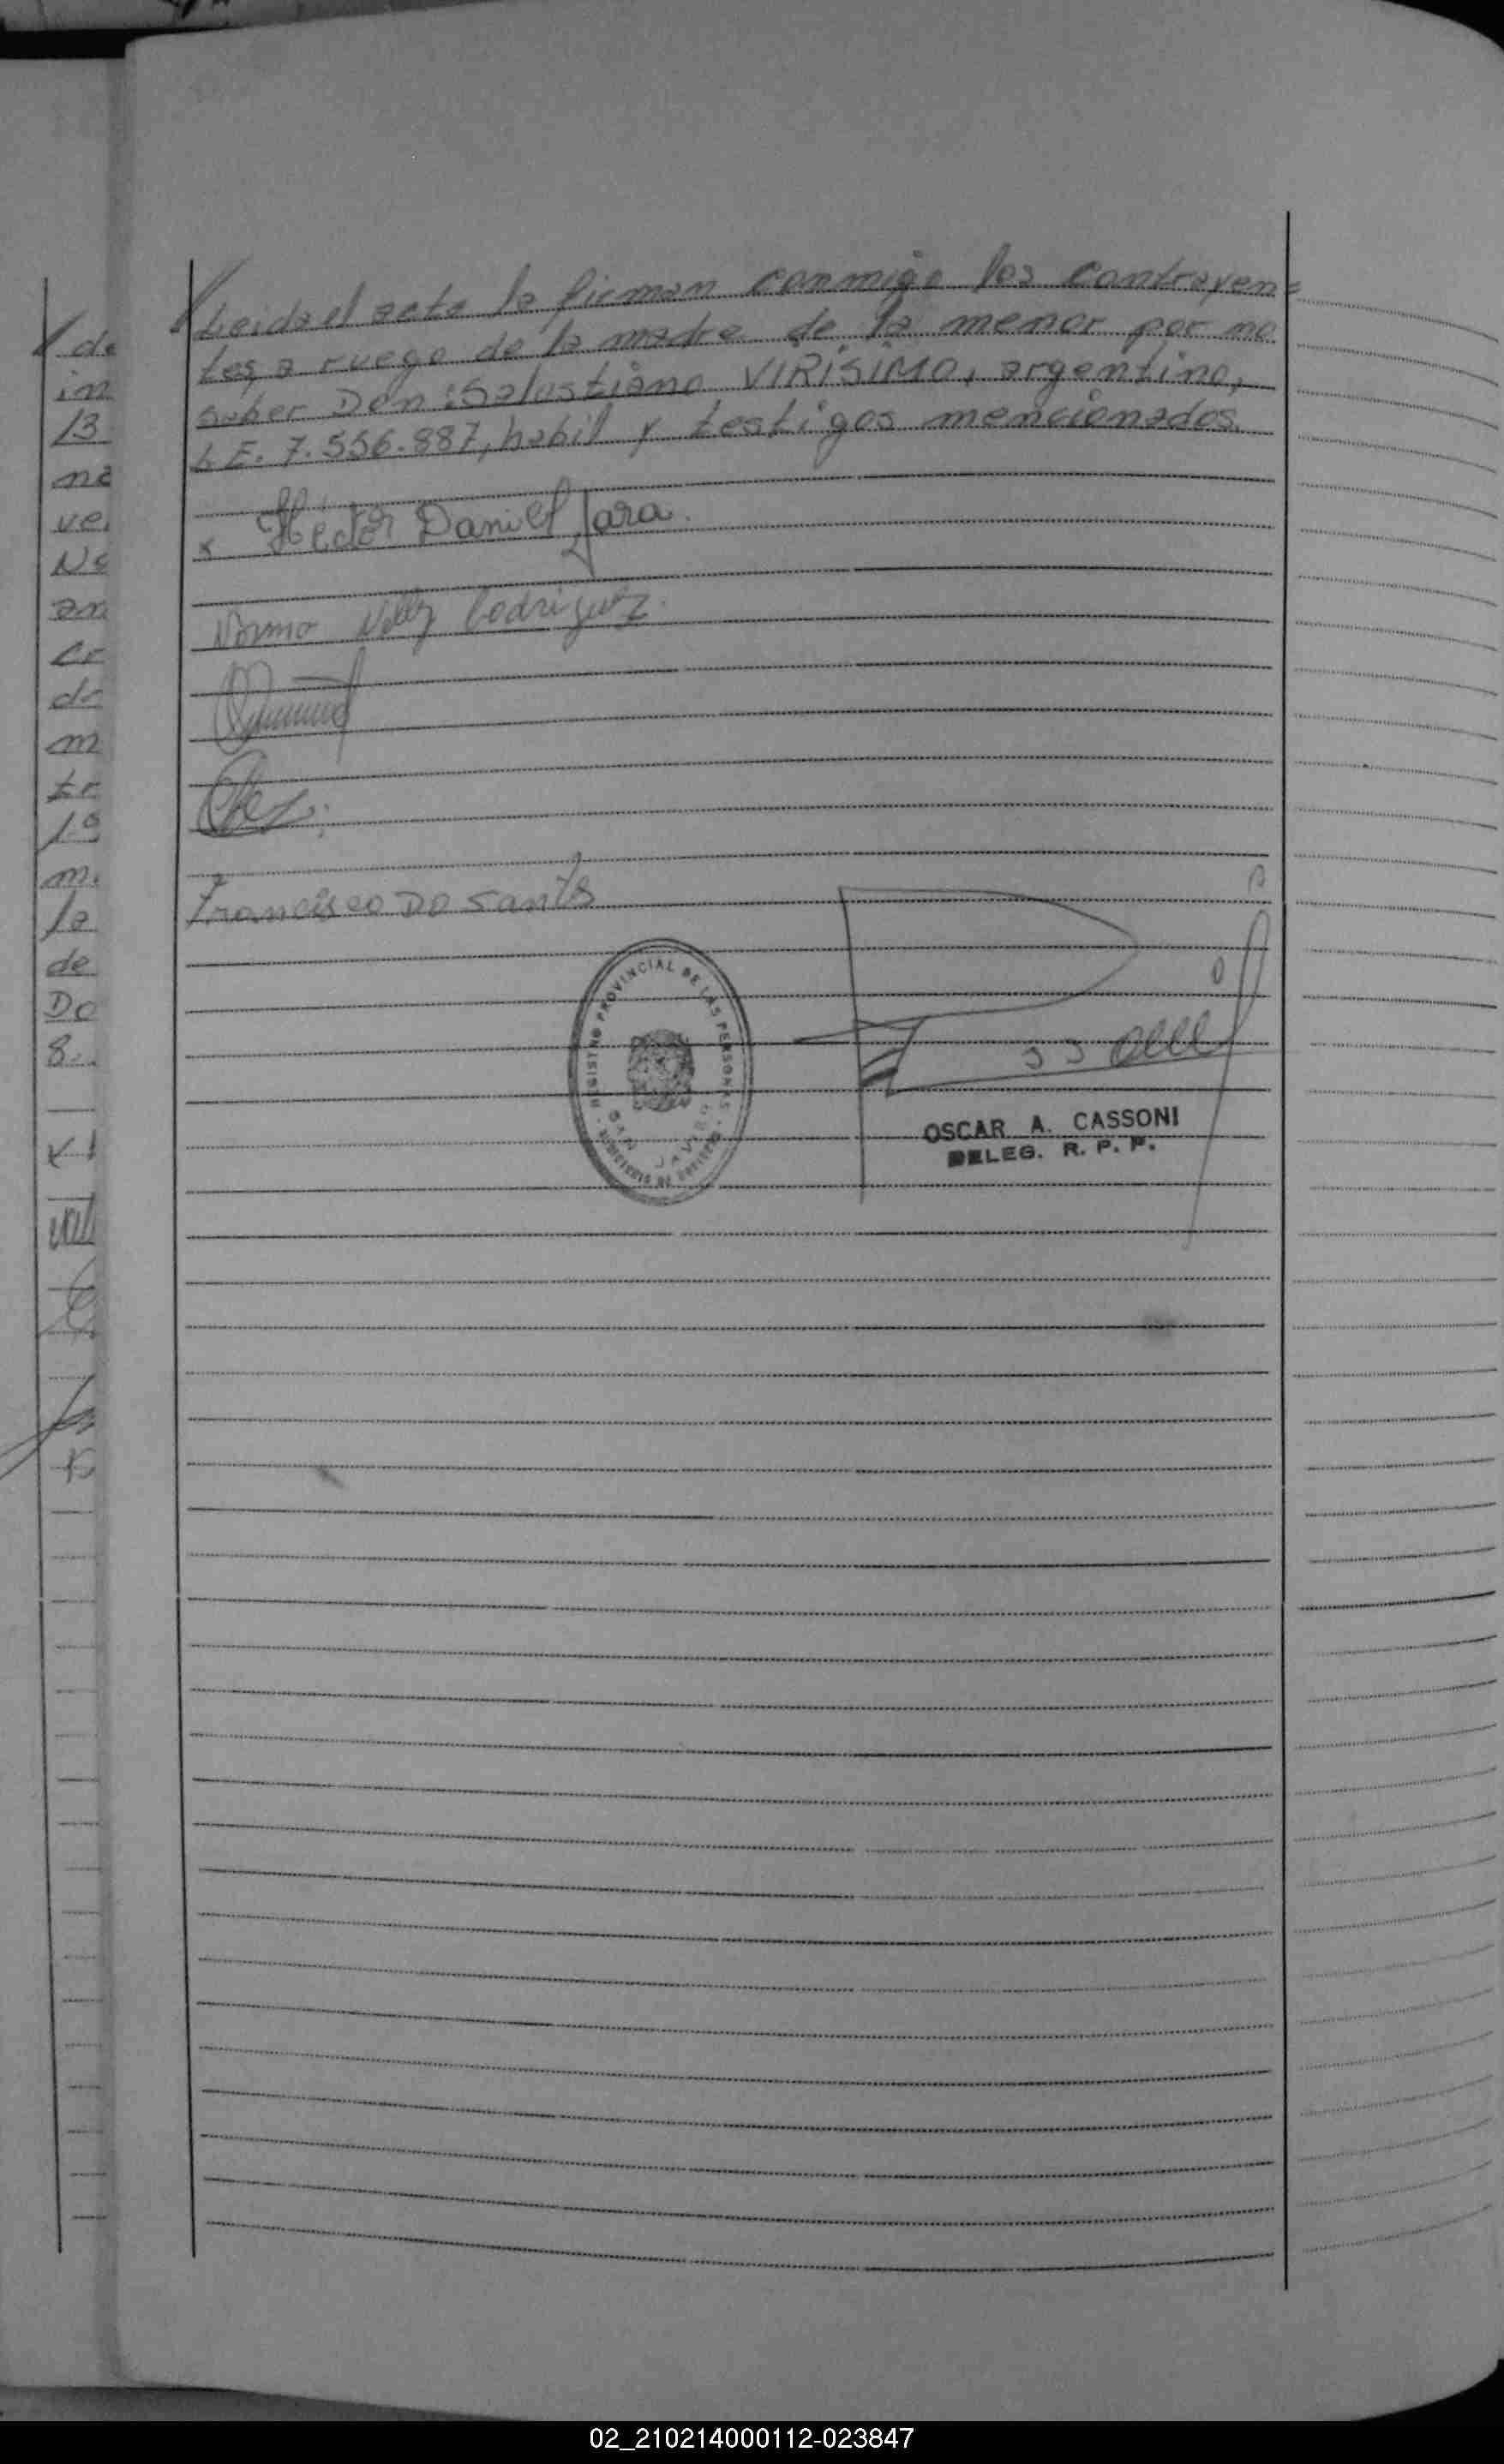 Leida el acta la firman conmigo los contrayen=
tes, a ruego de la madre de la menor por no
saber Don: Salustiano VIRISIMO, argentino,
L.E. 7.556.887, habil y testigos mencionados.
x Hector Daniel Jara.
Norma Nelly Rodriguez.
Francisco Do Santos
REGISTRO PROVINCIAL DE LAS PERSONAS
SAN JAVIER
MINISTERIO DE GOBIERNO
OSCAR A. CASSONI
DELEG. R. P. P.
de
in
13
na
ve
No
an
Cr
de
m
tr
1º
m.
la
de
Do
8
02_210214000112-023847